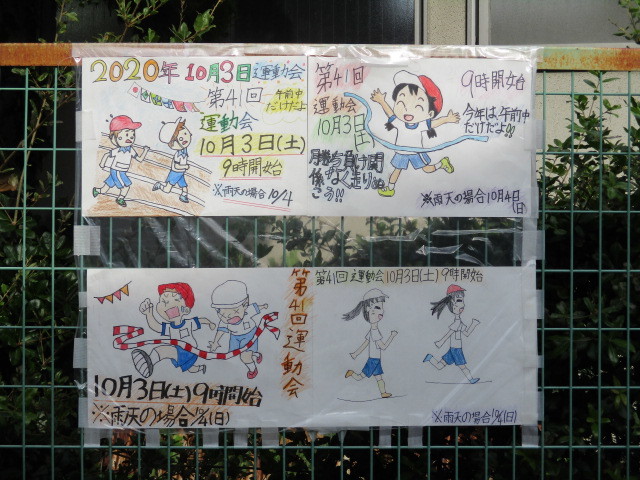 2020年 10月3日 運動会
第41回
午前中
だけだよ
運動会
10月3日(土)
9時開始
※雨天の場合 10/4
第41回
運動会
10月3日
(土)
9時開始
今年は、午前中
だけだよ!!
勝ち負け関
係なく走りぬ
こう!!
※雨天の場合10月4日
(日)
10月3日(土)9時開始
※雨天の場合10/4(日)
第41回運動会
第41回 運動会 10月3日(土) 9時開始
※雨天の場合10/4(日)